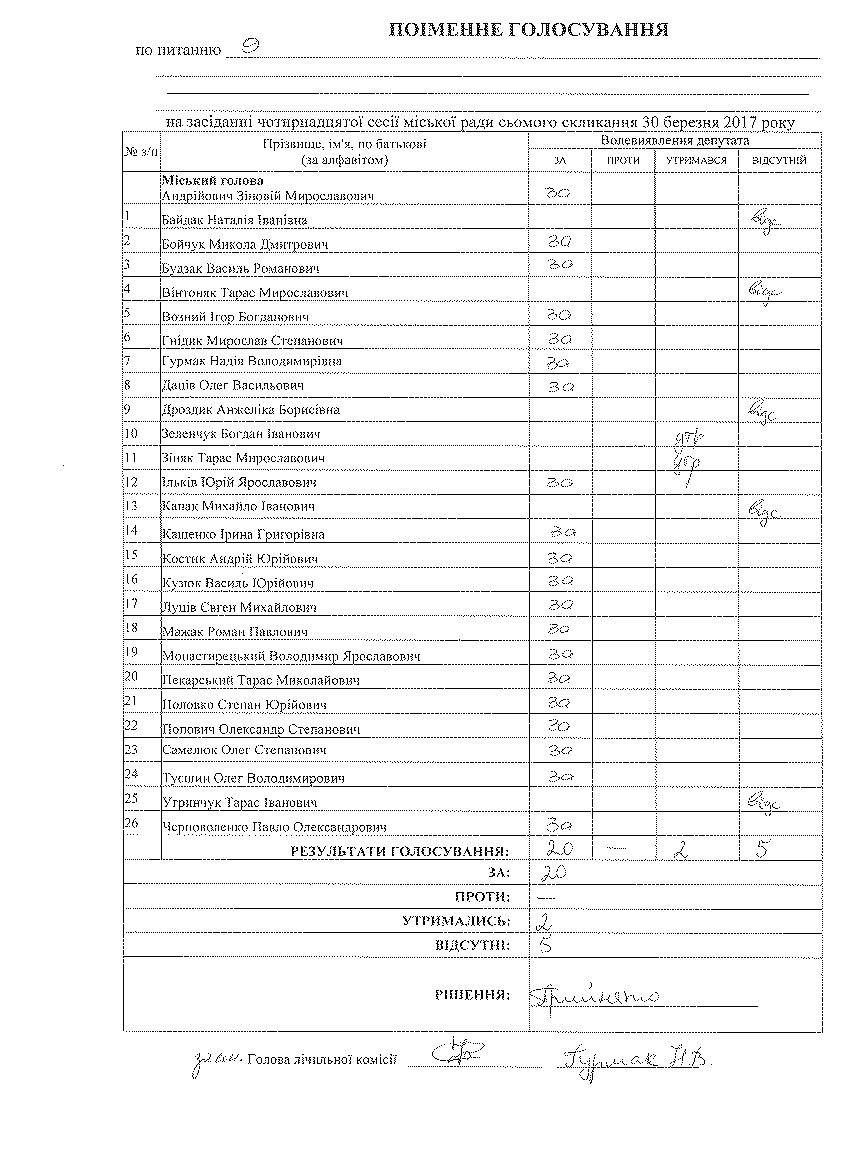 ПОІМЕННЕ ГОЛОСУВАННЯ
по питанню 9
на засіданні чотирнадцятої сесії міської ради сьомого скликання 30 березня 2017 року
№ з/п Прізвище, ім'я, по батькові (за алфавітом) Волевиявлення депутата
ЗА ПРОТИ УТРИМАВСЯ ВІДСУТНІЙ
Міський голова
Андрійович Зіновій Мирославович за
1 Байдак Наталія Іванівна відс
2 Бойчук Микола Дмитрович за
3 Будзак Василь Романович за
4 Вінтоняк Тарас Мирославович відс
5 Возний Ігор Богданович за
6 Гнідик Мирослав Степанович за
7 Гурмак Надія Володимирівна за
8 Даців Олег Васильович за
9 Дроздик Анжеліка Борисівна відс
10 Зеленчук Богдан Іванович утр
11 Зіняк Тарас Мирославович утр
12 Ільків Юрій Ярославович за
13 Капак Михайло Іванович відс
14 Кащенко Ірина Григорівна за
15 Костик Андрій Юрійович за
16 Кузюк Василь Юрійович за
17 Луців Євген Михайлович за
18 Мажак Роман Павлович за
19 Монастирецький Володимир Ярославович за
20 Пекарський Тарас Миколайович за
21 Половко Степан Юрійович за
22 Попович Олександр Степанович за
23 Самелюк Олег Степанович за
24 Тусшин Олег Володимирович за
25 Угринчук Тарас Іванович відс
26 Черноволенко Павло Олександрович за
РЕЗУЛЬТАТИ ГОЛОСУВАННЯ: 20 — 2 5
ЗА: 20
ПРОТИ: —
УТРИМАЛИСЬ: 2
ВІДСУТНІ: 5
РІШЕННЯ: Прийнято
Голова лічильної комісії Гурмак Н.В.